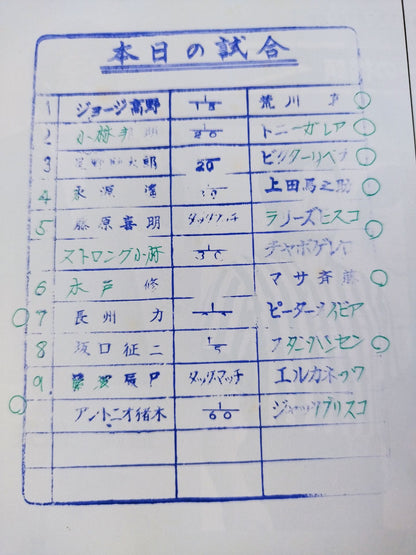 本日の試合
1 ジョージ高野 1/15 荒川
2 小林邦 1/20 トニーガレア
3 星野勘太郎 1/20 ビクターリベラ
4 永源 遙 上田馬之助
5 藤原喜明 タッグマッチ
ストロング小林 1/30 チャボゲレロ
6 木戸 修 マサ斉藤
7 長州 力 ピーターメイビア
8 坂口征二 スタンハンセン
9 タッグマッチ エルカネック
アントニオ猪木 1/60 ジャックブリスコ